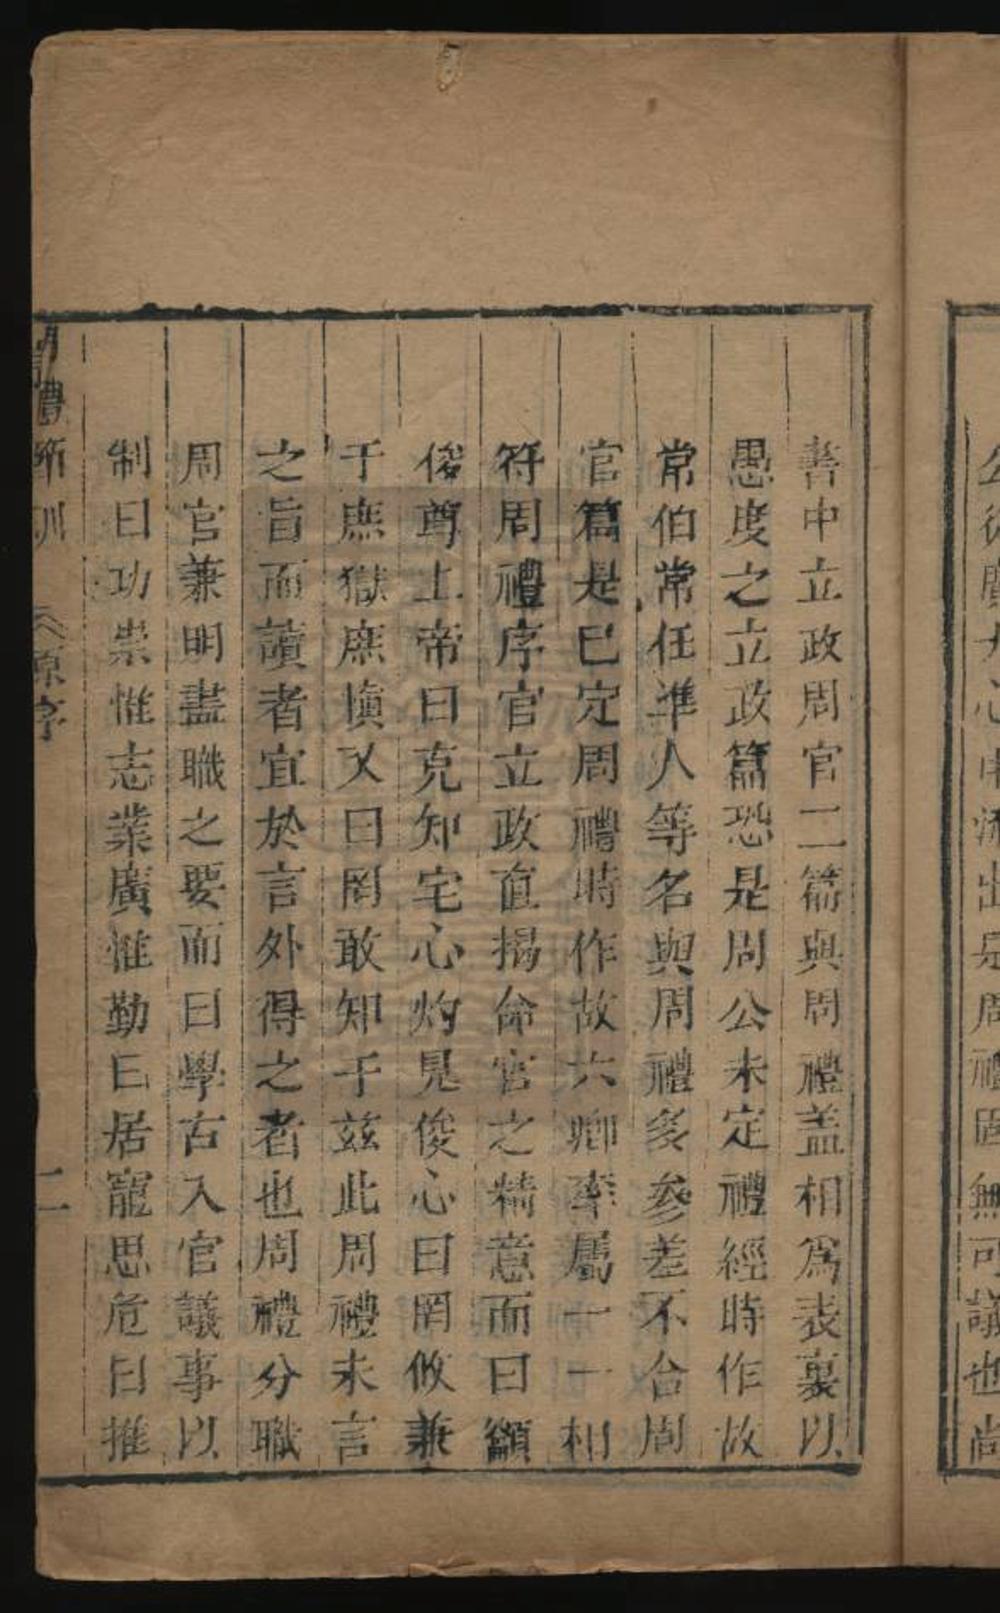 公從廣大心中流出是周禮固無可議也尚
書中立政周官二篇與周禮盖相爲表裏以
愚度之立政篇恐是周公未定禮經時作故
常伯常任準人等名與周禮多參差不合周
官篇是已定周禮時作故六卿率屬一一相
符周禮序官立政直揭命官之精意而曰籲
俊尊上帝曰克知宅心灼見俊心曰罔攸兼
于庶獄庶慎又曰罔敢知于兹此周禮未言
之旨而讀者宜於言外得之者也周禮分職
周官兼明盡職之要而曰學古入官議事以
制曰功崇惟志業廣惟勤曰居寵思危曰推
周禮節訓 原序 二